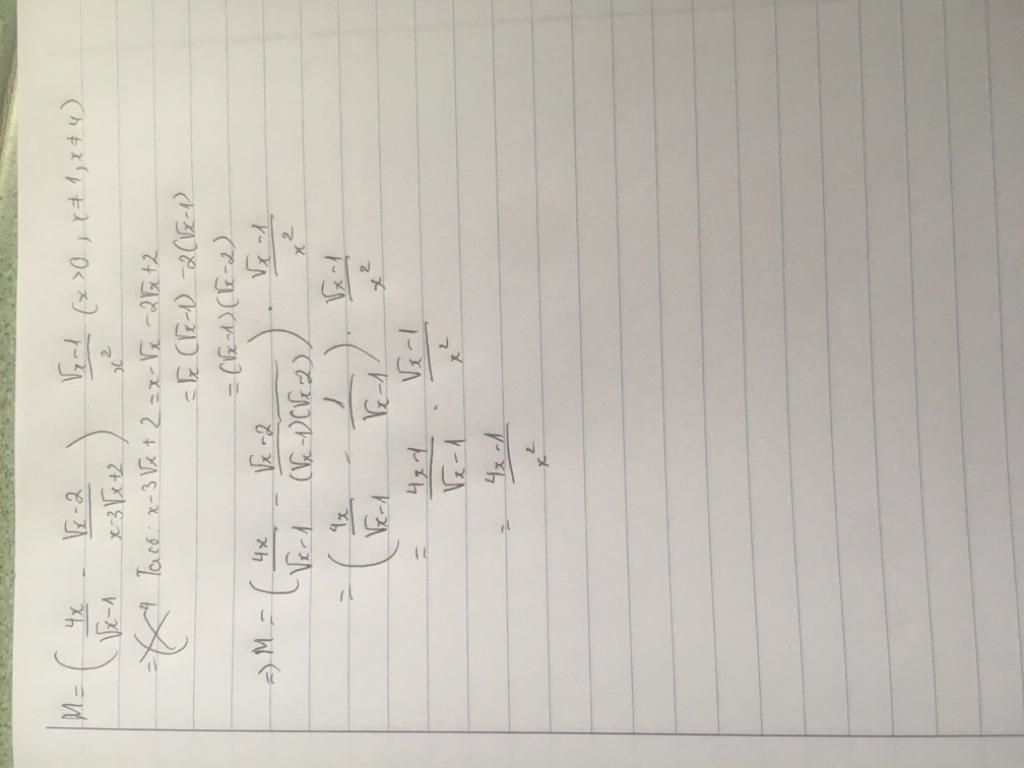 M = (4x/(√x-1) - (√x-2)/(x-3√x+2)) (√x-1)/x² (x>0, x≠1, x≠4)
Ta có: x-3√x+2 = x-√x-2√x+2
= √x(√x-1) -2(√x-1)
= (√x-1)(√x-2)
=> M = (4x/(√x-1) - (√x-2)/((√x-1)(√x-2))) . (√x-1)/x²
= (4x/(√x-1) - 1/(√x-1)) . (√x-1)/x²
= (4x-1)/(√x-1) . (√x-1)/x²
= (4x-1)/x²